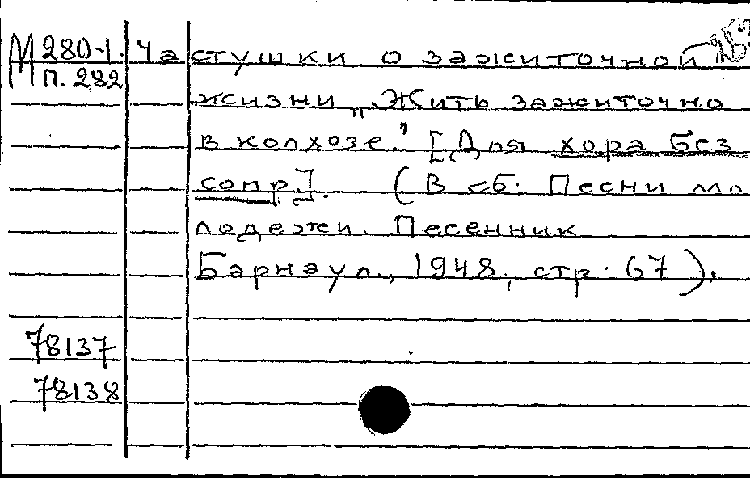 М 280-1. Частушки о зажиточной
М п. 282
жизни „Жить зажиточно
в колхозе." [Для хора без
сопр.]. (В сб. Песни мо
лодежи. Песенник
Барнаул., 1948, стр. 67).
78137
78138